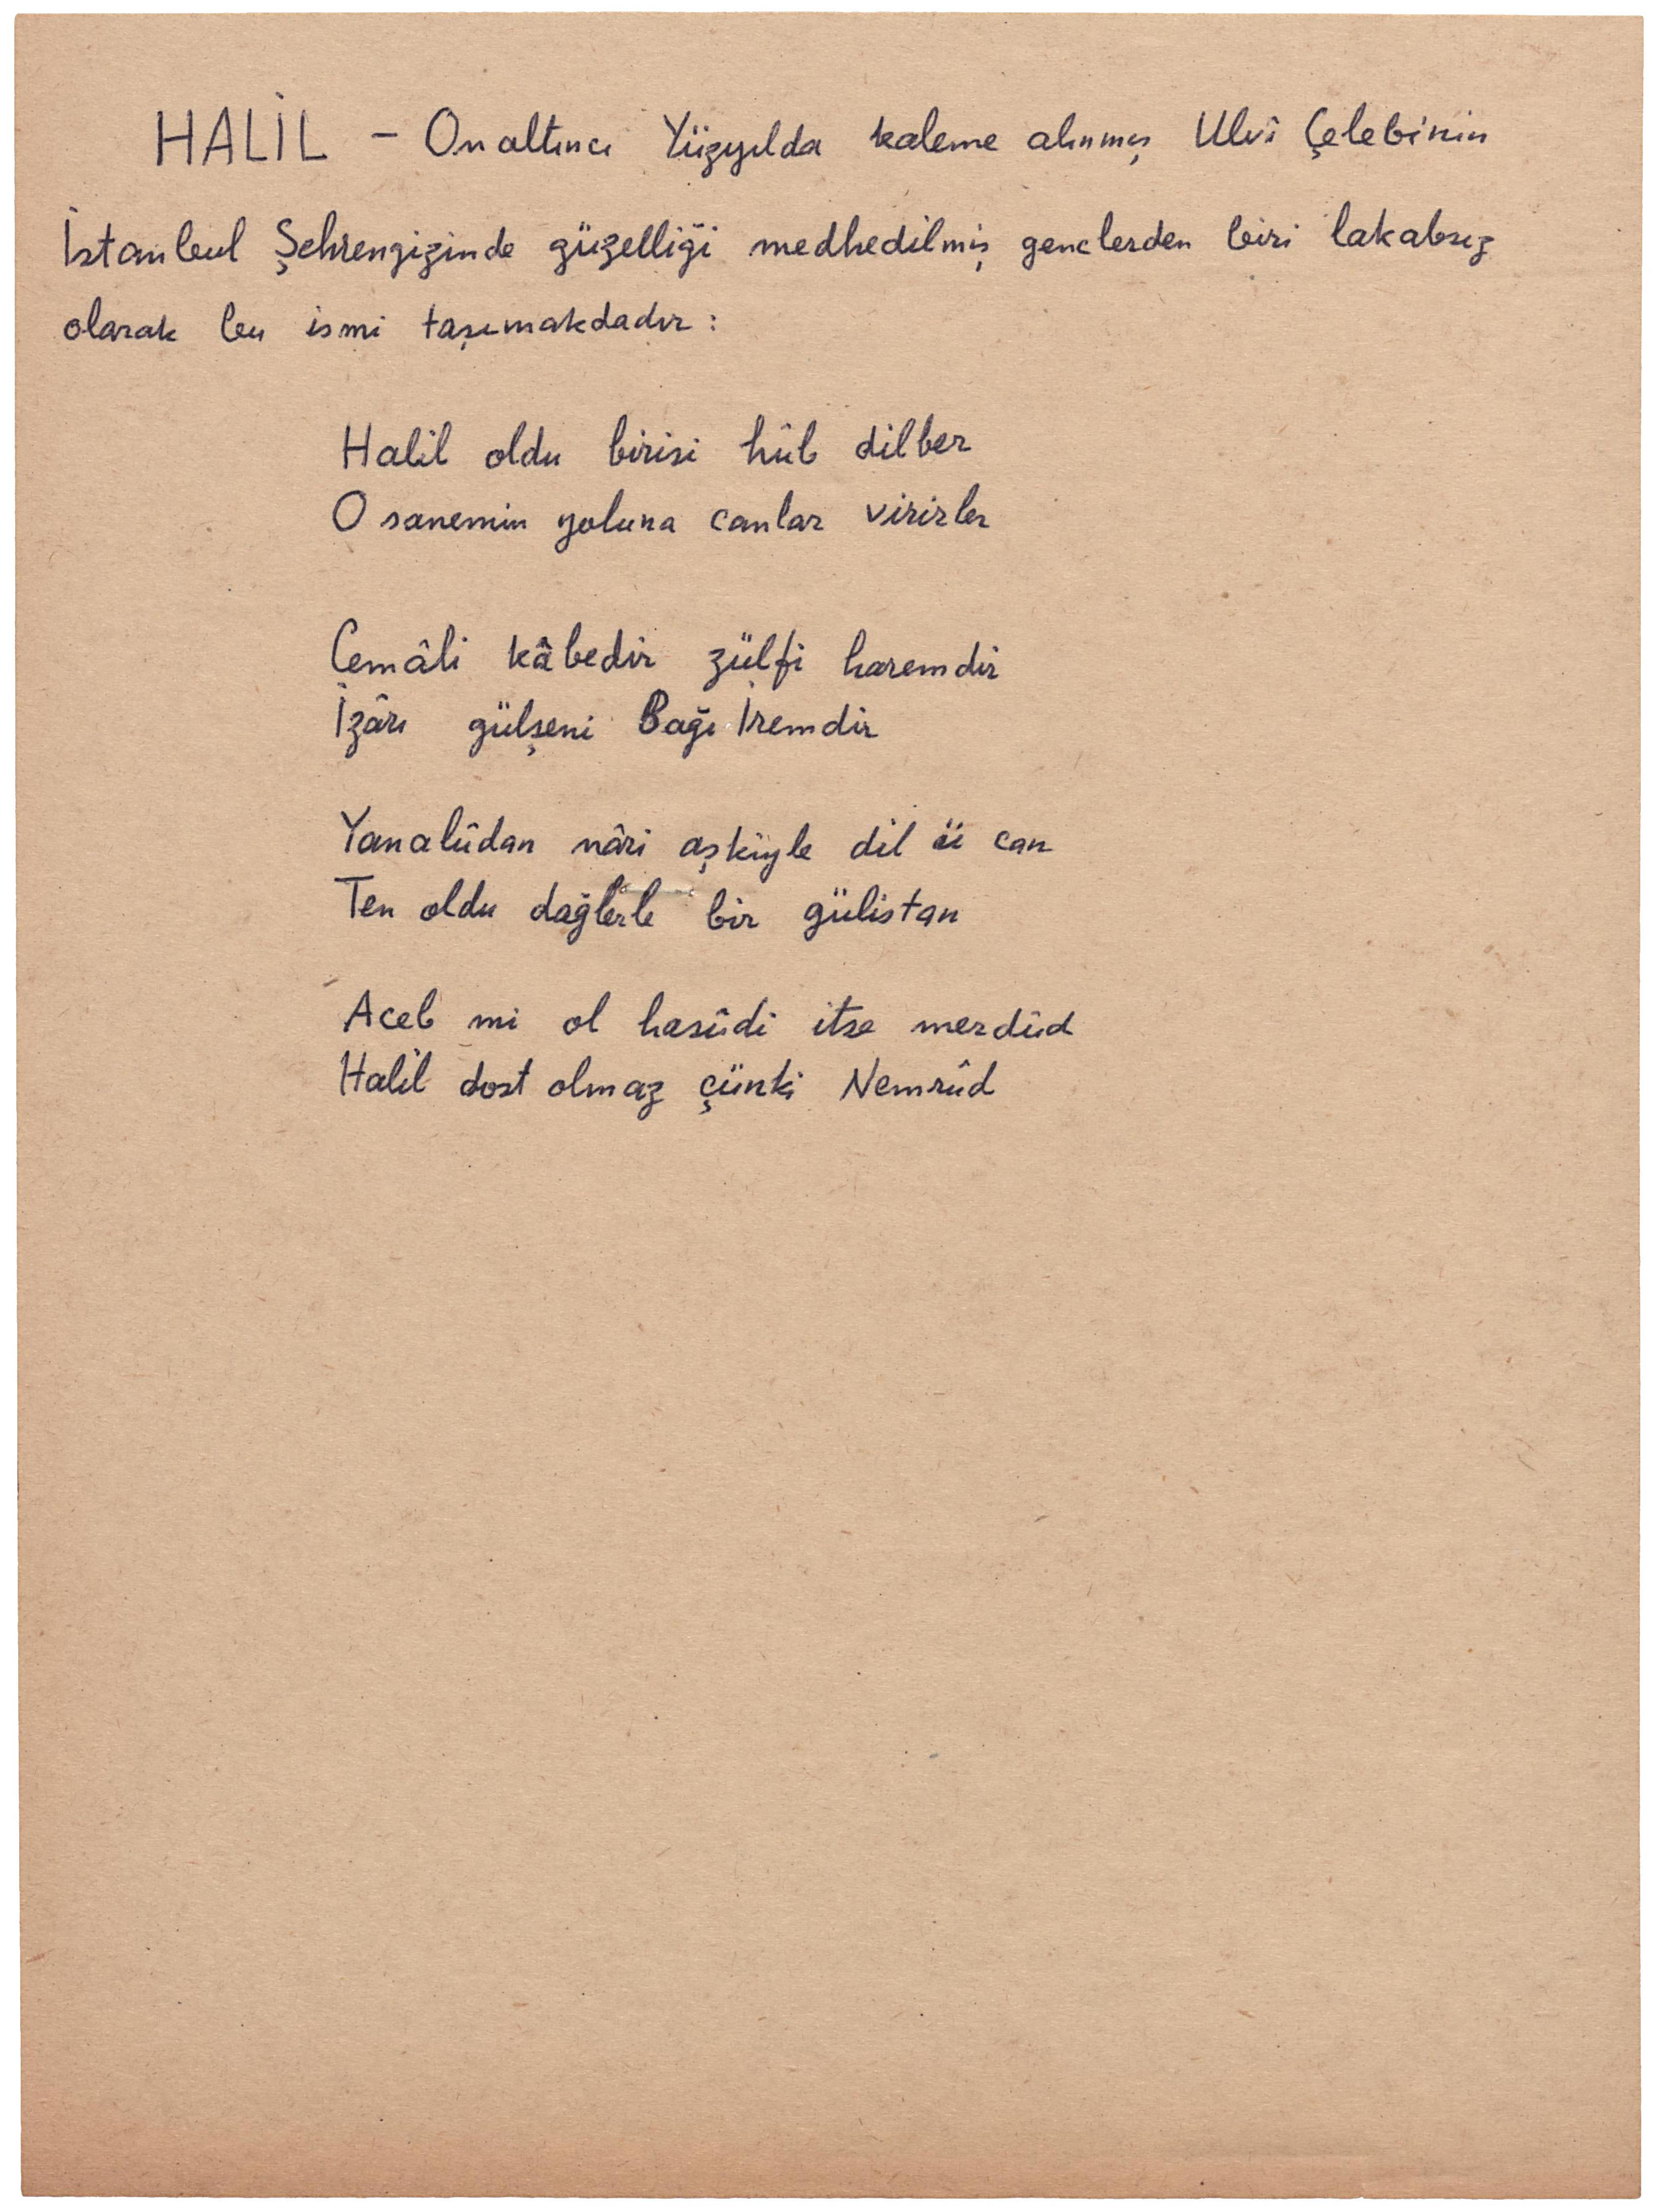 HALİL – Onaltıncı Yüzyılda kaleme alınmış Ulvî Çelebinin
İstanbul Şehrengizinde güzelliği medhedilmiş genclerden biri lakabsız
olarak bu ismi taşımakdadır :
Halil oldu birisi hûb dilber
O sanemin yoluna canlar virirler
Cemâli kâbedir zülfi haremdir
İzârı gülşeni Bağı İremdir
Yanalûdan nâri aşkiyle dil ü can
Ten oldu dağlerle bir gülistan
Aceb mi ol hasûdi itse merdûd
Halil dost olmaz çünki Nemrûd